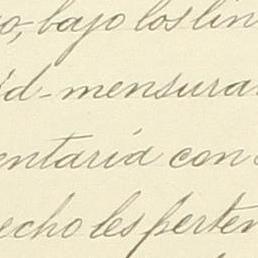 o, bajo los lin
id-mensura
entaria con
echo les perten